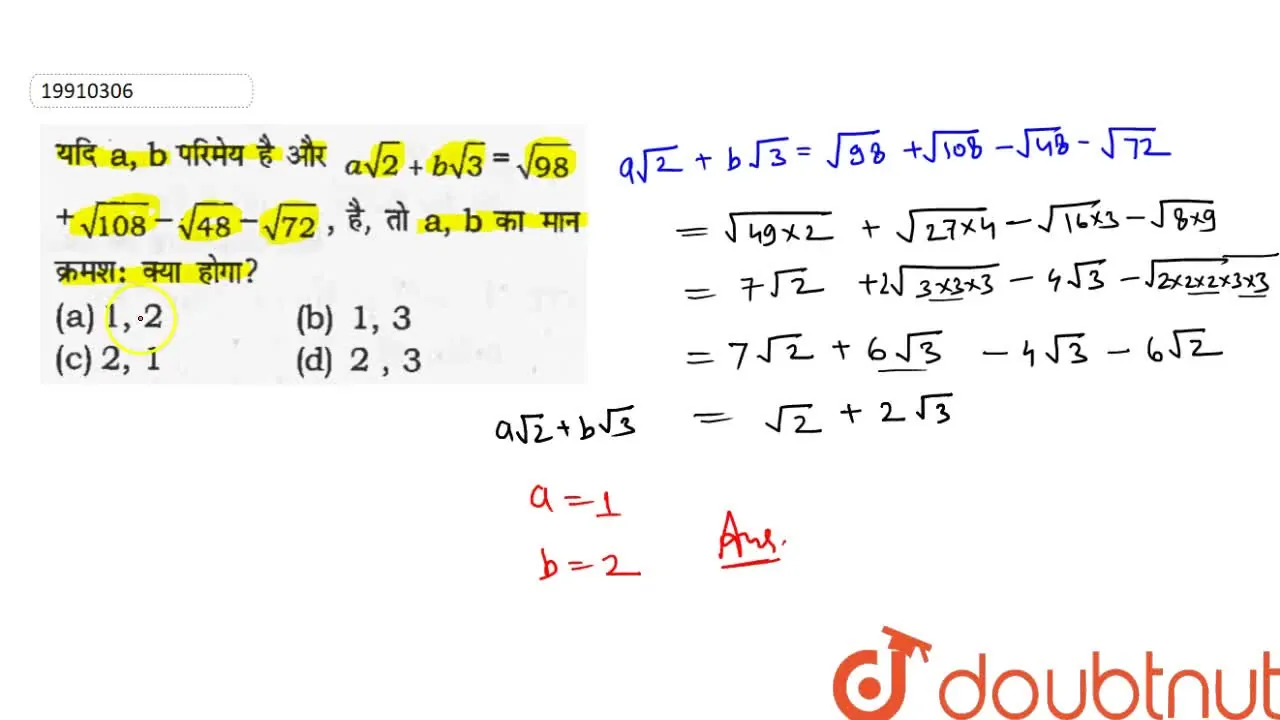 19910306
यदि a, b परिमेय है और a√2 + b√3 = √98
+ √108 − √48 − √72 , है, तो a, b का मान
क्रमशः क्या होगा?
(a) 1, 2 (b) 1, 3
(c) 2, 1 (d) 2 , 3
a√2 + b√3 = √98 + √108 − √48 − √72
= √49×2 + √27×4 − √16×3 − √8×9
= 7√2 + 2√3×3×3 − 4√3 − √2×2×2×3×3
= 7√2 + 6√3 − 4√3 − 6√2
a√2 + b√3 = √2 + 2√3
a = 1
b = 2
Ans.
doubtnut